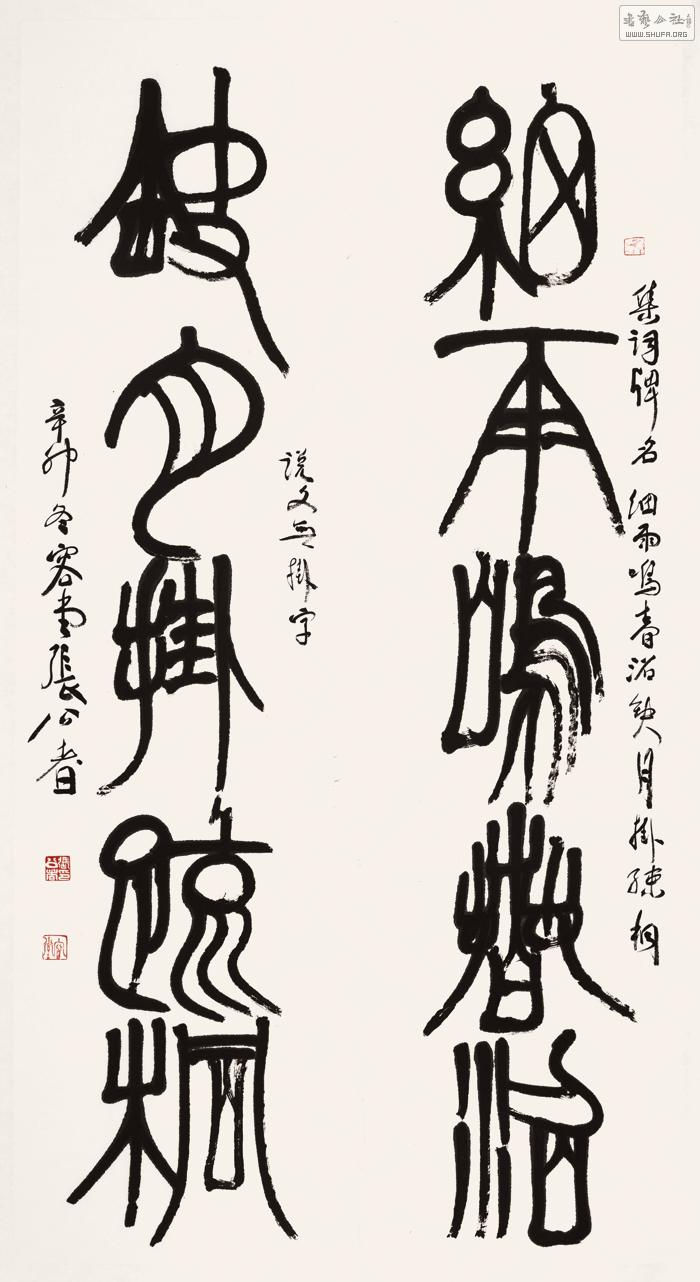 集詞牌名 細雨鳴春沼 缺月掛疎桐
細雨鳴春沼
説文無掛字
缺月掛疏桐
辛卯冬容堂張公者
書藝公社
WWW.SHUFA.ORG